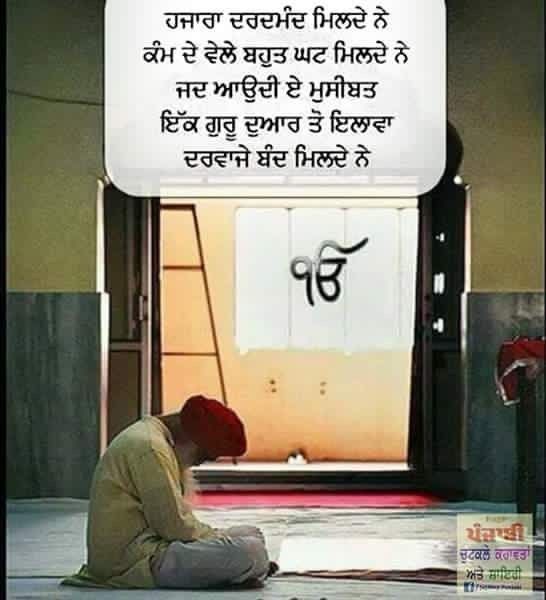 ਹਜਾਰਾ ਦਰਦਮੰਦ ਮਿਲਦੇ ਨੇ
ਕੰਮ ਦੇ ਵੇਲੇ ਬਹੁਤ ਘਟ ਮਿਲਦੇ ਨੇ
ਜਦ ਆਉਦੀ ਏ ਮੁਸੀਬਤ
ਇੱਕ ਗੁਰੂ ਦੁਆਰ ਤੋ ਇਲਾਵਾ
ਦਰਵਾਜੇ ਬੰਦ ਮਿਲਦੇ ਨੇ
ੴ
ਪੰਜਾਬੀ
ਚੁਟਕਲੇ ਕਹਾਵਤਾਂ
ਅਤੇ ਸ਼ਾਇਰੀ